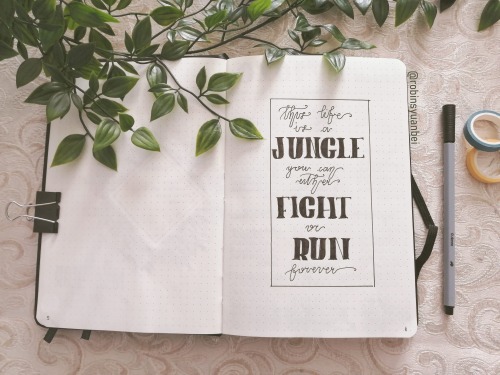 this life
is a
JUNGLE
you can
either
FIGHT
or
RUN
forever
@robinsyuanbei